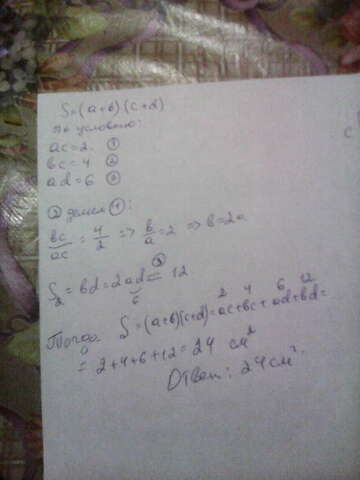 S=(a+b)·(c+d)
По условию:
ac=2. ①
bc=4 ②
ad=6 ③
② делим ①:
bc/ac = 4/2 => b/a=2 => b=2a
S₂ = bd=2ad= 12
③
6
2 4 6 12
Тогда S=(a+b)(c+d)=ac+bc+ad+bd=
=2+4+6+12=24 см²
Ответ: 24 см².